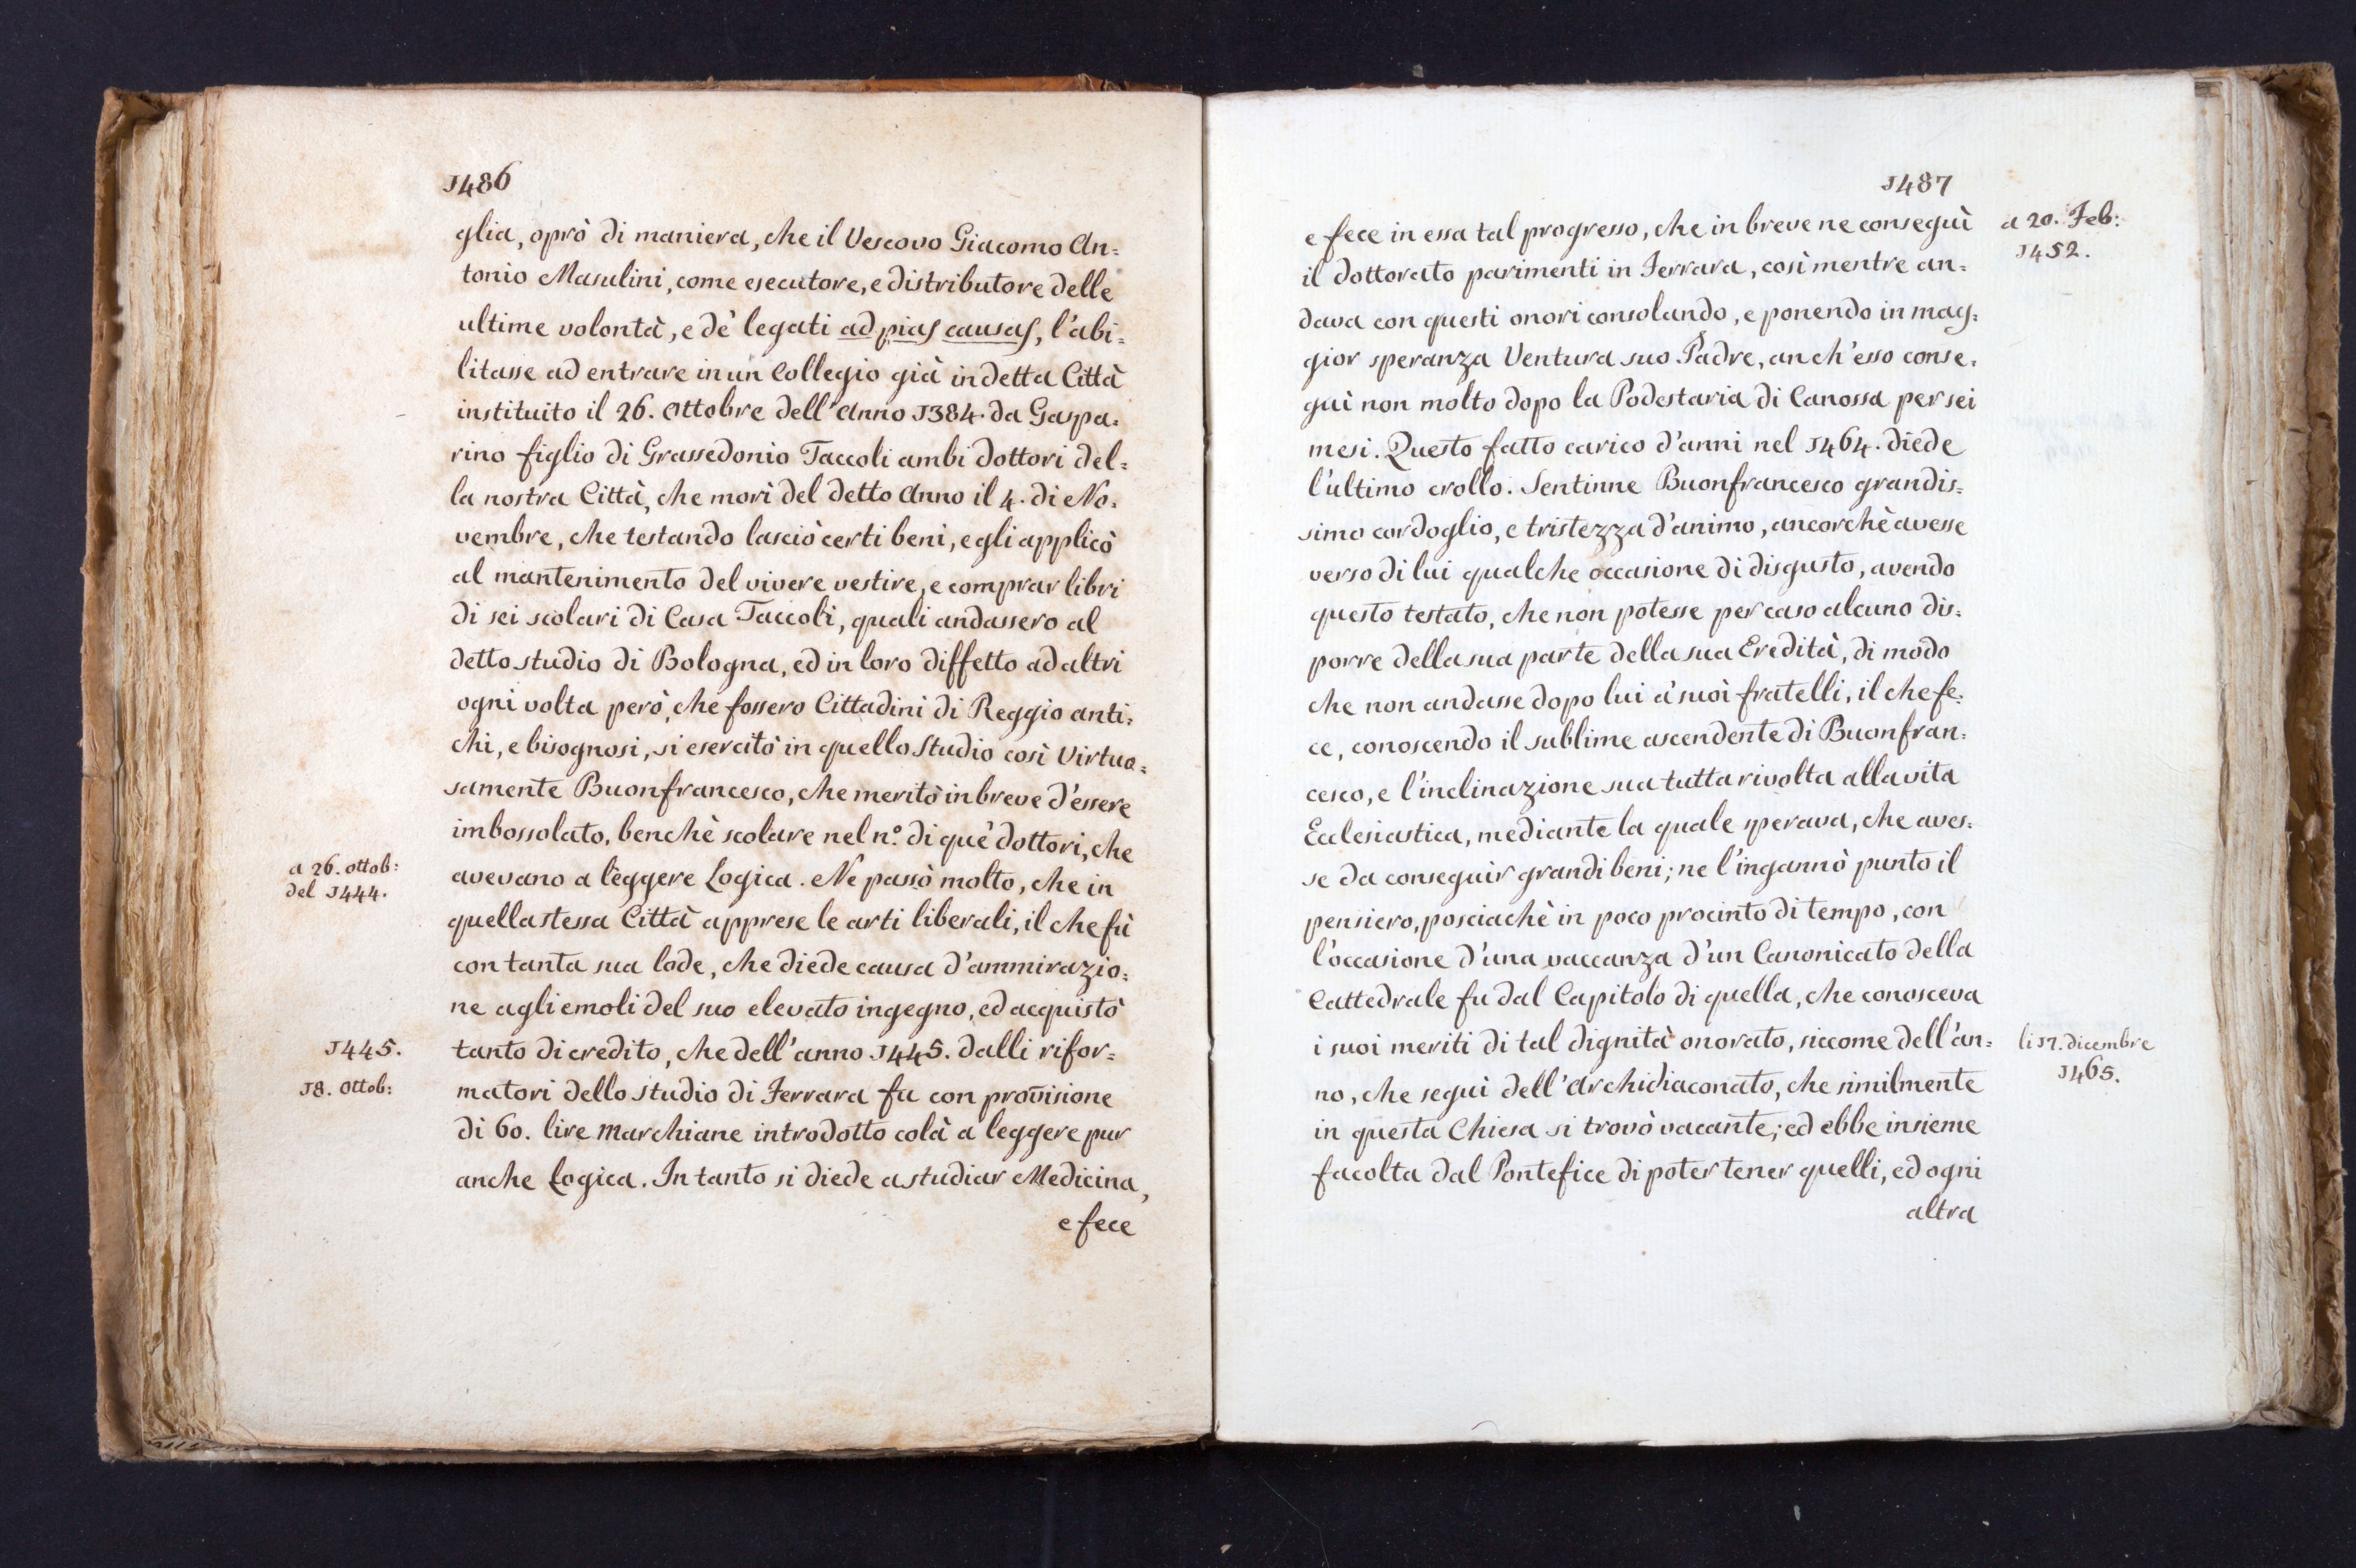 1486
glia, oprò di maniera, che il Vescovo Giacomo An=
tonio Masulini, come esecutore, e distributore delle
ultime volontà, e dè legati ad pias causas, l'abi=
litasse ad entrare in un Collegio già in detta Città
instituito il 26. Ottobre dell'Anno 1384. da Gaspa=
rino figlio di Grassedonio Taccoli ambi dottori del=
la nostra Città, che morì del detto Anno il 4. di No=
vembre, che testando lasciò certi beni, e gli applicò
al mantenimento del vivere vestire, e comprar libri
di sei scolari di Casa Taccoli, quali andassero al
detto studio di Bologna, ed in loro diffetto ad altri
ogni volta però, che fossero Cittadini di Reggio anti=
chi, e bisognosi, si esercitò in quello Studio così Virtuo=
samente Buonfrancesco, che meritò in breve d'essere
imbossolato, benchè scolare nel n.º di què dottori, che
a 26. ottob:
del 1444.
avevano a leggere Logica. Ne passò molto, che in
quella stessa Città apprese le arti liberali, il che fù
con tanta sua lode, che diede causa d'ammirazio=
ne agli emoli del suo elevato ingegno, ed acquistò
1445.
tanto di credito, che dell'anno 1445. dalli rifor=
18. Ottob:
matori dello studio di Ferrara fu con provisione
di 60. lire Marchiane introdotto colà a leggere pur
anche Logica. In tanto si diede a studiar Medicina,
e fece
1487
e fece in essa tal progresso, che in breve ne conseguì
a 20. Feb:
1452.
il dottorato parimenti in Ferrara, così mentre an=
dava con questi onori consolando, e ponendo in mag=
gior speranza Ventura suo Padre, anch'esso conse=
guì non molto dopo la Podestaria di Canossa per sei
mesi. Questo fatto carico d'anni nel 1464. diede
l'ultimo crollo. Sentinne Buonfrancesco grandis=
simo cordoglio, e tristezza d'animo, ancorchè avesse
verso di lui qualche occasione di disgusto, avendo
questo testato, che non potesse per caso alcuno dis=
porre della sua parte della sua Eredità, di modo
che non andasse dopo lui a' suoi fratelli, il che fe=
ce, conoscendo il sublime ascendente di Buonfran=
cesco, e l'inclinazione sua tutta rivolta alla vita
Ecclesiastica, mediante la quale sperava, che aves=
se da conseguir grandi beni; ne l'ingannò punto il
pensiero, posciachè in poco procinto di tempo, con
l'occasione d'una vaccanza d'un Canonicato della
Cattedrale fu dal Capitolo di quella, che conosceva
i suoi meriti di tal dignità onorato, siccome dell'an=
li 17. dicembre
1465.
no, che seguì dell'Archidiaconato, che similmente
in questa Chiesa si trovò vacante; ed ebbe insieme
facolta dal Pontefice di poter tener quelli, ed ogni
altra